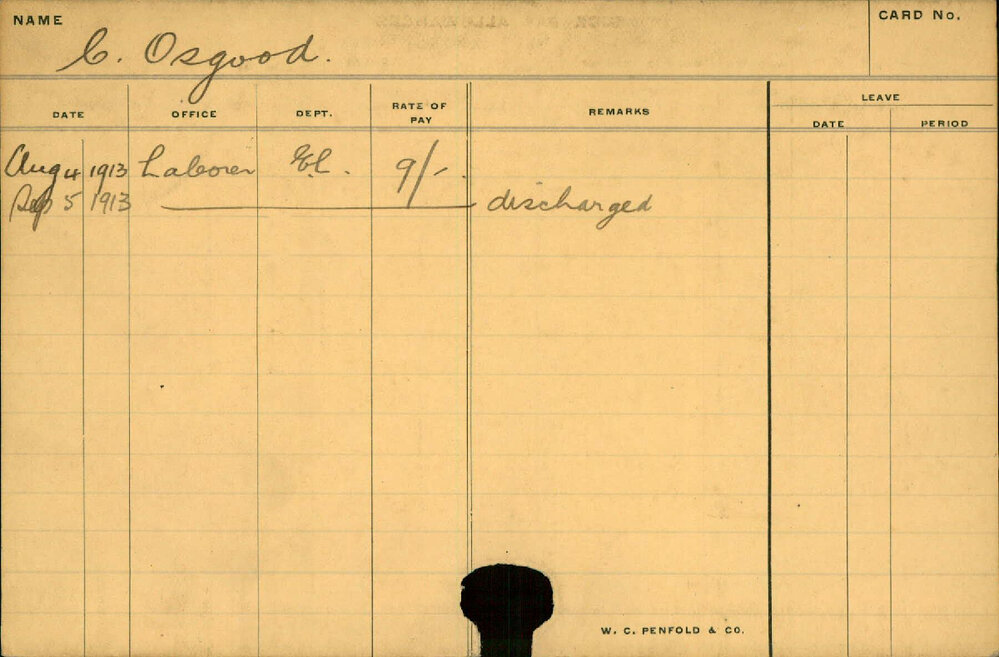 NAME C. Osgood. CARD No.
DATE OFFICE DEPT. RATE OF PAY REMARKS LEAVE DATE PERIOD
Aug 4 1913 Laborer E.L. 9/-.
Sep 5 1913 discharged
W. C. PENFOLD & CO.